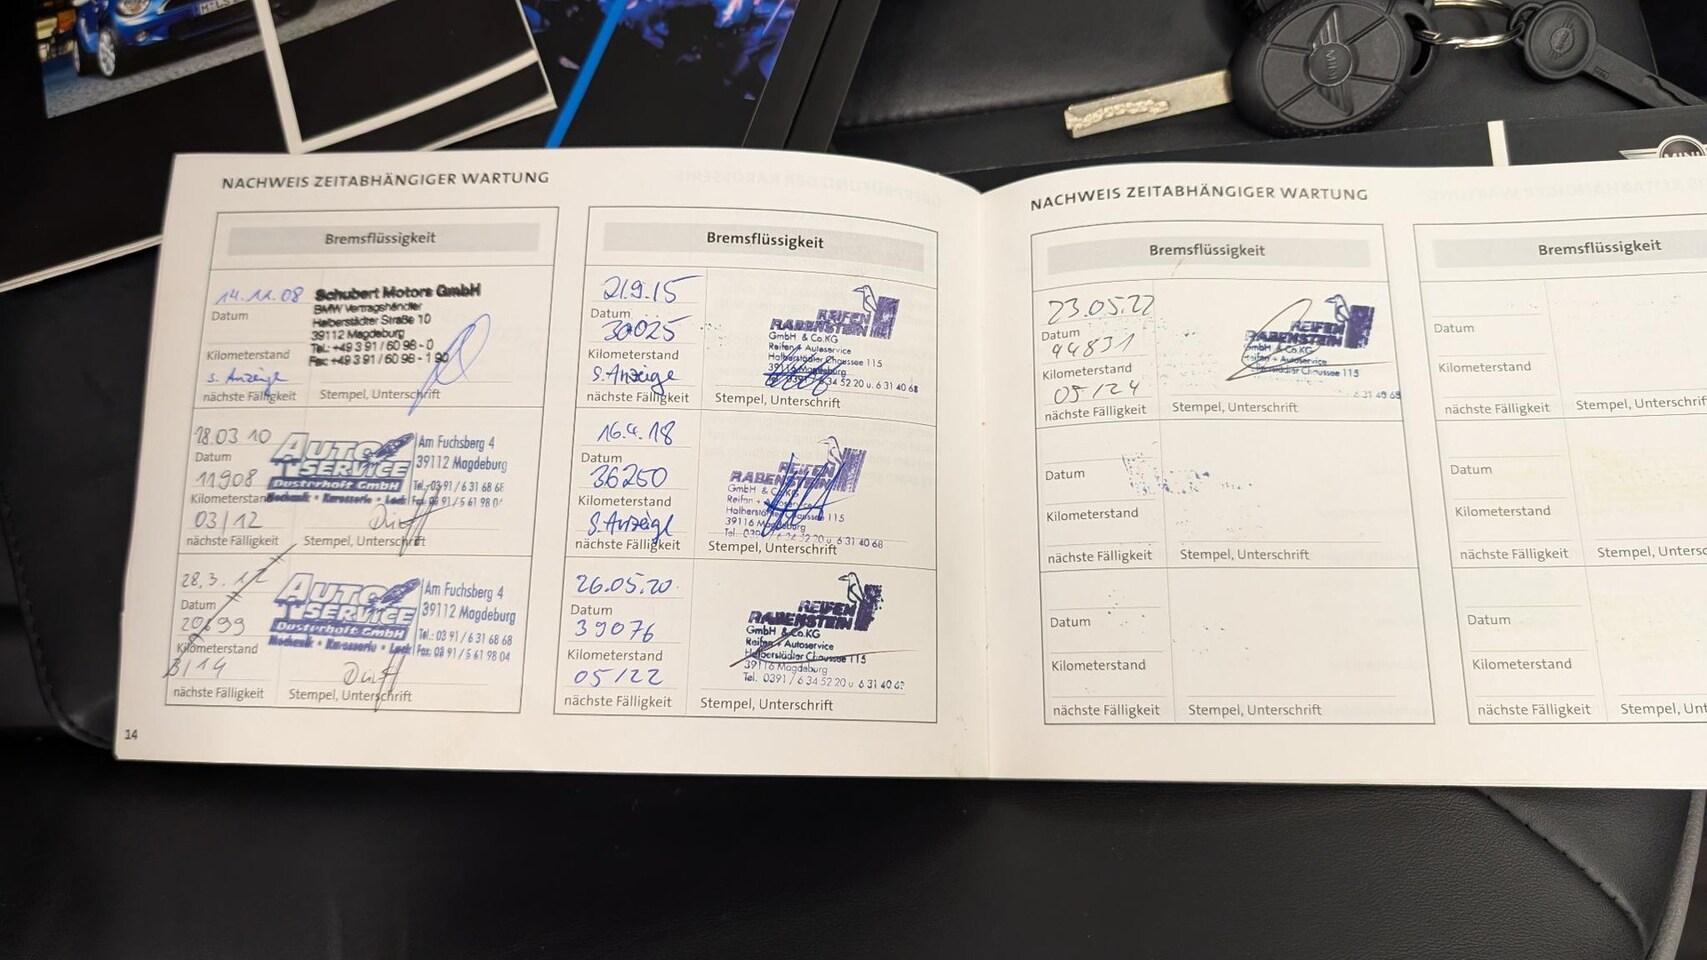 MINI
MINI
NACHWEIS ZEITABHÄNGIGER WARTUNG
Bremsflüssigkeit
14.11.08
Datum
Kilometerstand
s. Anzeige
nächste Fälligkeit
Schubert Motors GmbH
BMW Vertragshändler
Halberstädter Straße 10
39112 Magdeburg
Tel.: +49 3 91 / 60 98 - 0
Fax: +49 3 91 / 60 98 - 1 90
Stempel, Unterschrift
28.03 10
Datum
11908
Kilometerstand
03/12
nächste Fälligkeit
AUTO SERVICE
Dusterhoft GmbH
Mechanik • Karosserie • Lack
Am Fuchsberg 4
39112 Magdeburg
Tel.: 03 91 / 6 31 68 68
Fax: 03 91 / 5 61 98 04
Stempel, Unterschrift
28.3.12
Datum
20699
Kilometerstand
3/14
nächste Fälligkeit
AUTO SERVICE
Dusterhoft GmbH
Mechanik • Karosserie • Lack
Am Fuchsberg 4
39112 Magdeburg
Tel.: 03 91 / 6 31 68 68
Fax: 03 91 / 5 61 98 04
Stempel, Unterschrift
14
Bremsflüssigkeit
21.9.15
Datum
30025
Kilometerstand
S. Anzeige
nächste Fälligkeit
REIFEN
RABENSTEIN
GmbH & Co.KG
Reifen + Autoservice
Halberstädter Chaussee 115
39116 Magdeburg
Tel. 0391 / 6 34 52 20 u. 6 31 40 68
Stempel, Unterschrift
16.4.18
Datum
36250
Kilometerstand
S. Anzeige
nächste Fälligkeit
REIFEN
RABENSTEIN
GmbH & Co.KG
Reifen + Autoservice
Halberstädter Chaussee 115
39116 Magdeburg
Tel. 0391 / 6 34 52 20 u. 6 31 40 68
Stempel, Unterschrift
26.05.20.
Datum
39076
Kilometerstand
05/22
nächste Fälligkeit
REIFEN
RABENSTEIN
GmbH & Co.KG
Reifen + Autoservice
Halberstädter Chaussee 115
39116 Magdeburg
Tel. 0391 / 6 34 52 20 u. 6 31 40 68
Stempel, Unterschrift
NACHWEIS ZEITABHÄNGIGER WARTUNG
Bremsflüssigkeit
23.05.22
Datum
44831
Kilometerstand
05/24
nächste Fälligkeit
REIFEN
RABENSTEIN
GmbH & Co.KG
Reifen + Autoservice
Halberstädter Chaussee 115
6 31 40 68
Stempel, Unterschrift
Datum
Kilometerstand
nächste Fälligkeit
Stempel, Unterschrift
Datum
Kilometerstand
nächste Fälligkeit
Stempel, Unterschrift
Bremsflüssigkeit
Datum
Kilometerstand
nächste Fälligkeit
Stempel, Unterschrif
Datum
Kilometerstand
nächste Fälligkeit
Stempel, Untersc
Datum
Kilometerstand
nächste Fälligkeit
Stempel, Unt